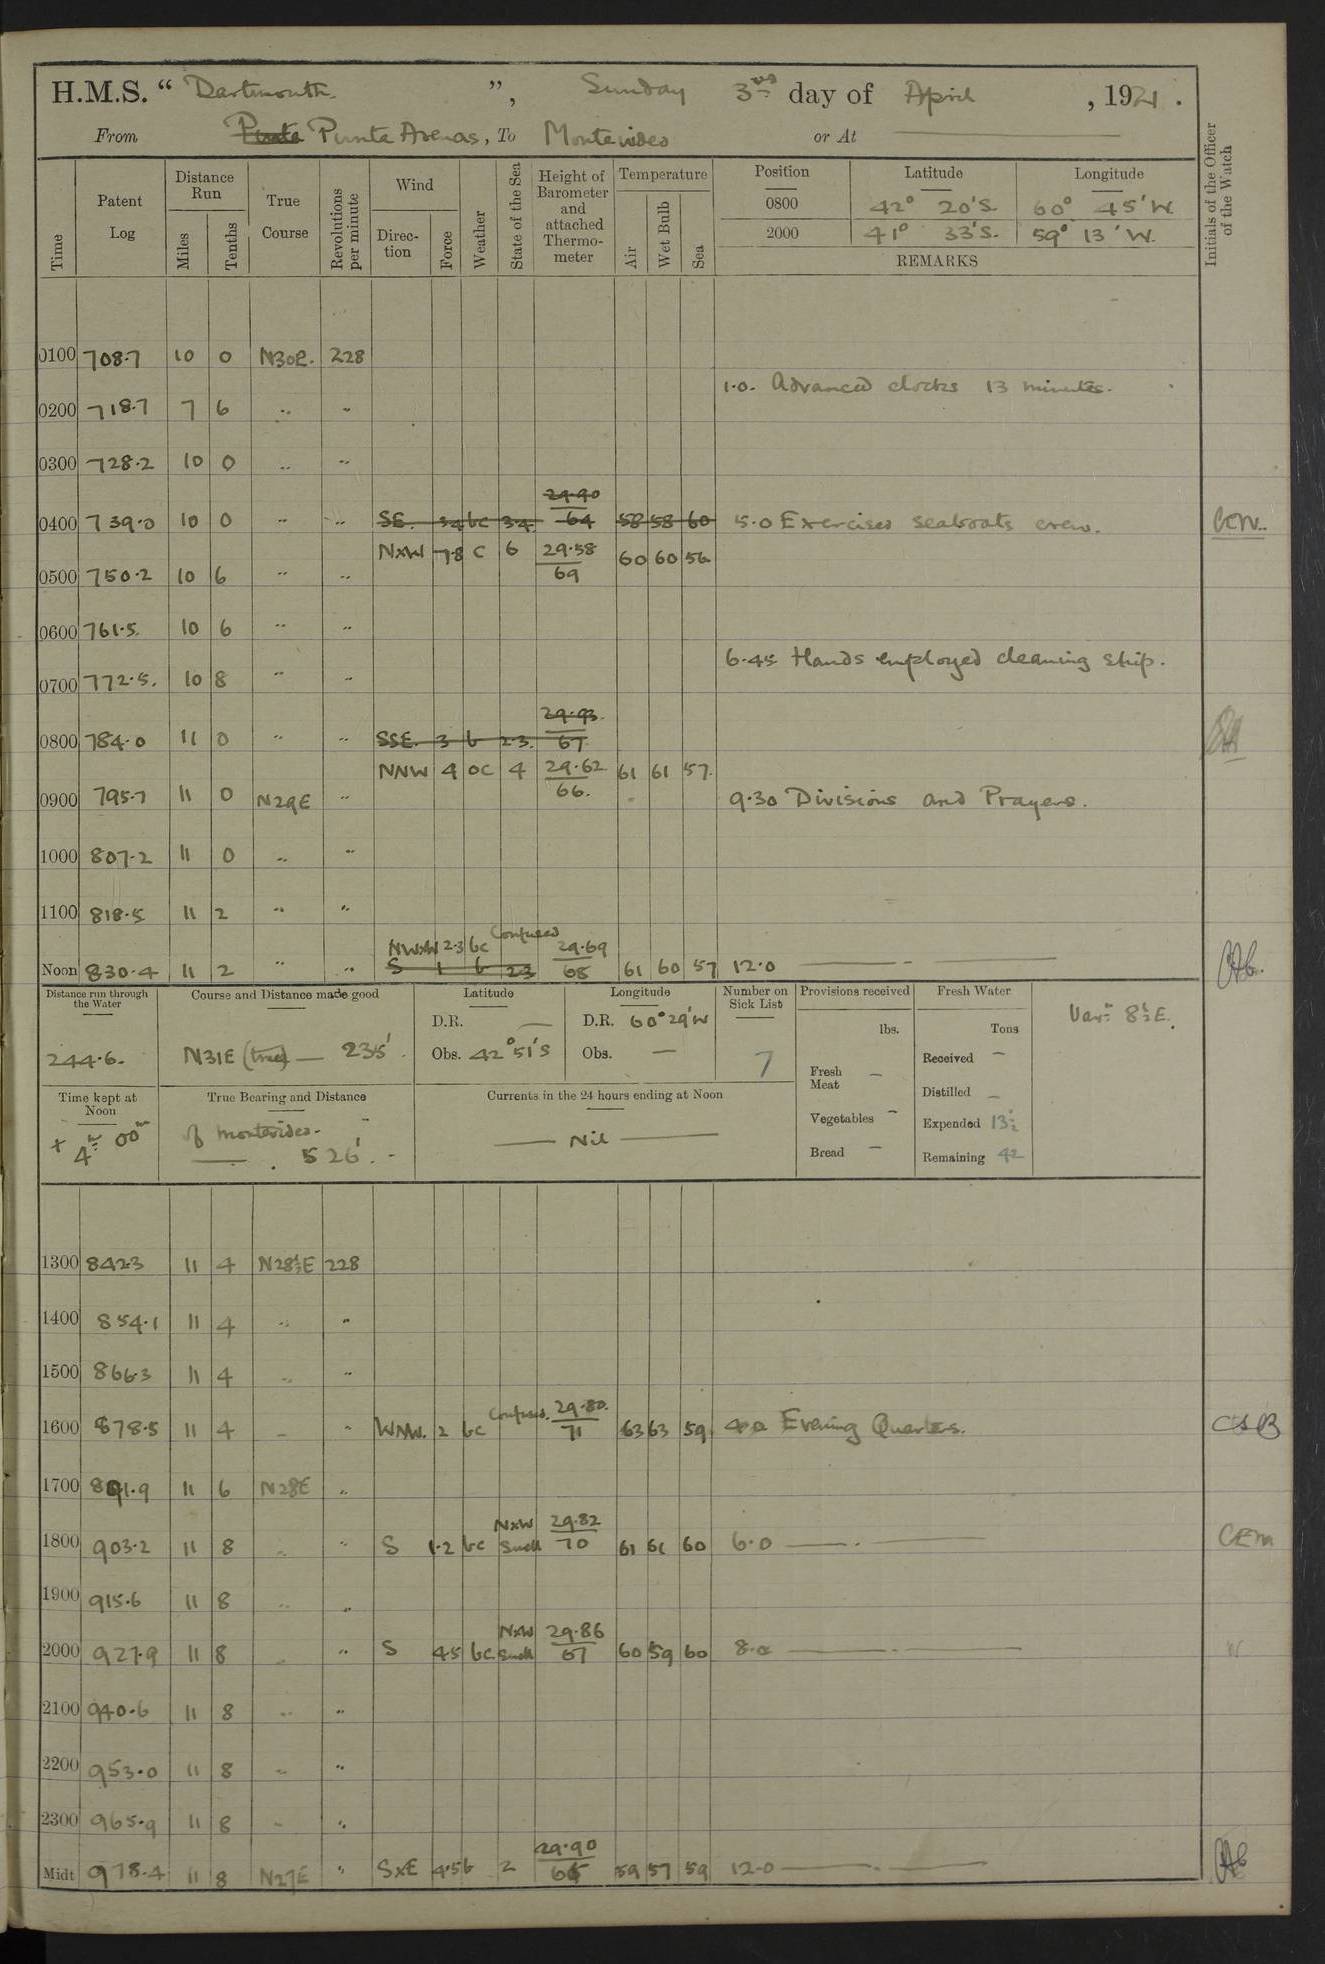 H.M.S. “ Dartmouth ”, Sunday 3rd day of April, 1921.
From Punta Punta Arenas, To Montevideo or At
Time Patent Log Distance Run Miles Tenths True Course Revolutions per minute Wind Direction Force Weather State of the Sea Height of Barometer and attached Thermometer Temperature Air Wet Bulb Sea Position Latitude Longitude Initials of the Officer of the Watch
0800 42° 20'S. 60° 45'W
2000 41° 33'S. 59° 13'W.
REMARKS
0100 708.7 10 0 N30E. 228
1.0. Advanced clocks 13 minutes.
0200 718.7 7 6 " "
0300 728.2 10 0 " "
29.90
0400 739.0 10 0 " " SE. 34 bc 34. 64 58 58 60 5.0 Exercised seaboats crew. CEM.
NxW 7.8 C 6 29.58 60 60 56
0500 750.2 10 6 " " 69
0600 761.5 10 6 " "
6.45 Hands employed cleaning ship.
0700 772.5. 10 8 " "
29.93.
0800 784.0 11 0 " " SSE. 3 b 23. 67
NNW 4 oc 4 29.62 61 61 57.
66.
0900 795.7 11 0 N29E " 9.30 Divisions and Prayers.
1000 807.2 11 0 " "
1100 818.5 11 2 " "
NWxW 2.3 bc Confused 29.69
Noon 830.4 11 2 " " S 1 b 23 68 61 60 57 12.0
Distance run through the Water Course and Distance made good Latitude Longitude Number on Sick List Provisions received Fresh Water
D.R. — D.R. 60°29'W lbs. Tons Varn. 8½E.
244.6. N31E (true) — 235'. Obs. 42°51'S Obs. — 7 Fresh Meat — Received —
Time kept at Noon True Bearing and Distance Currents in the 24 hours ending at Noon Distilled —
+ 4h 00m of Montevideo. Nil Vegetables — Expended 13½
526'. Bread — Remaining 42
1300 842.3 11 4 N28½E 228
1400 854.1 11 4 " "
1500 866.3 11 4 " "
1600 878.5 11 4 " " WNW. 2 bc Confused. 29.80. 71 63 63 59 4.0 Evening Quarters. CSB
1700 891.9 11 6 N28E "
NxW 29.82
1800 903.2 11 8 " " S 1.2 bc Swell 70 61 61 60 6.0 CEM
1900 915.6 11 8 " "
NxW 29.86
2000 927.9 11 8 " " S 45 bc Swell 67 60 59 60 8.0
2100 940.6 11 8 " "
2200 953.0 11 8 " "
2300 965.9 11 8 " "
29.90
Midt 978.4 11 8 N27E " SxE 4.5 b 2 59 57 59 12.0